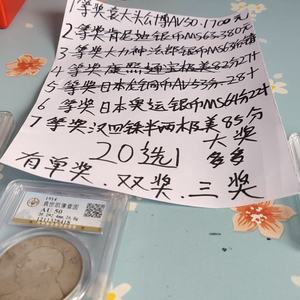 1等奖袁大头公博AV50.1700元
2等奖肯尼迪银币MS63.380元
3等奖大力神法郎银币MS63
4等奖康熙通宝极美82分2什
5等奖日本 AV53分.28十
6等奖日本奥运银币MS64分2什
7等奖汉四铢半两极美85分
20选1
大奖
多多
有单奖.双奖.三奖
1914
AU 50